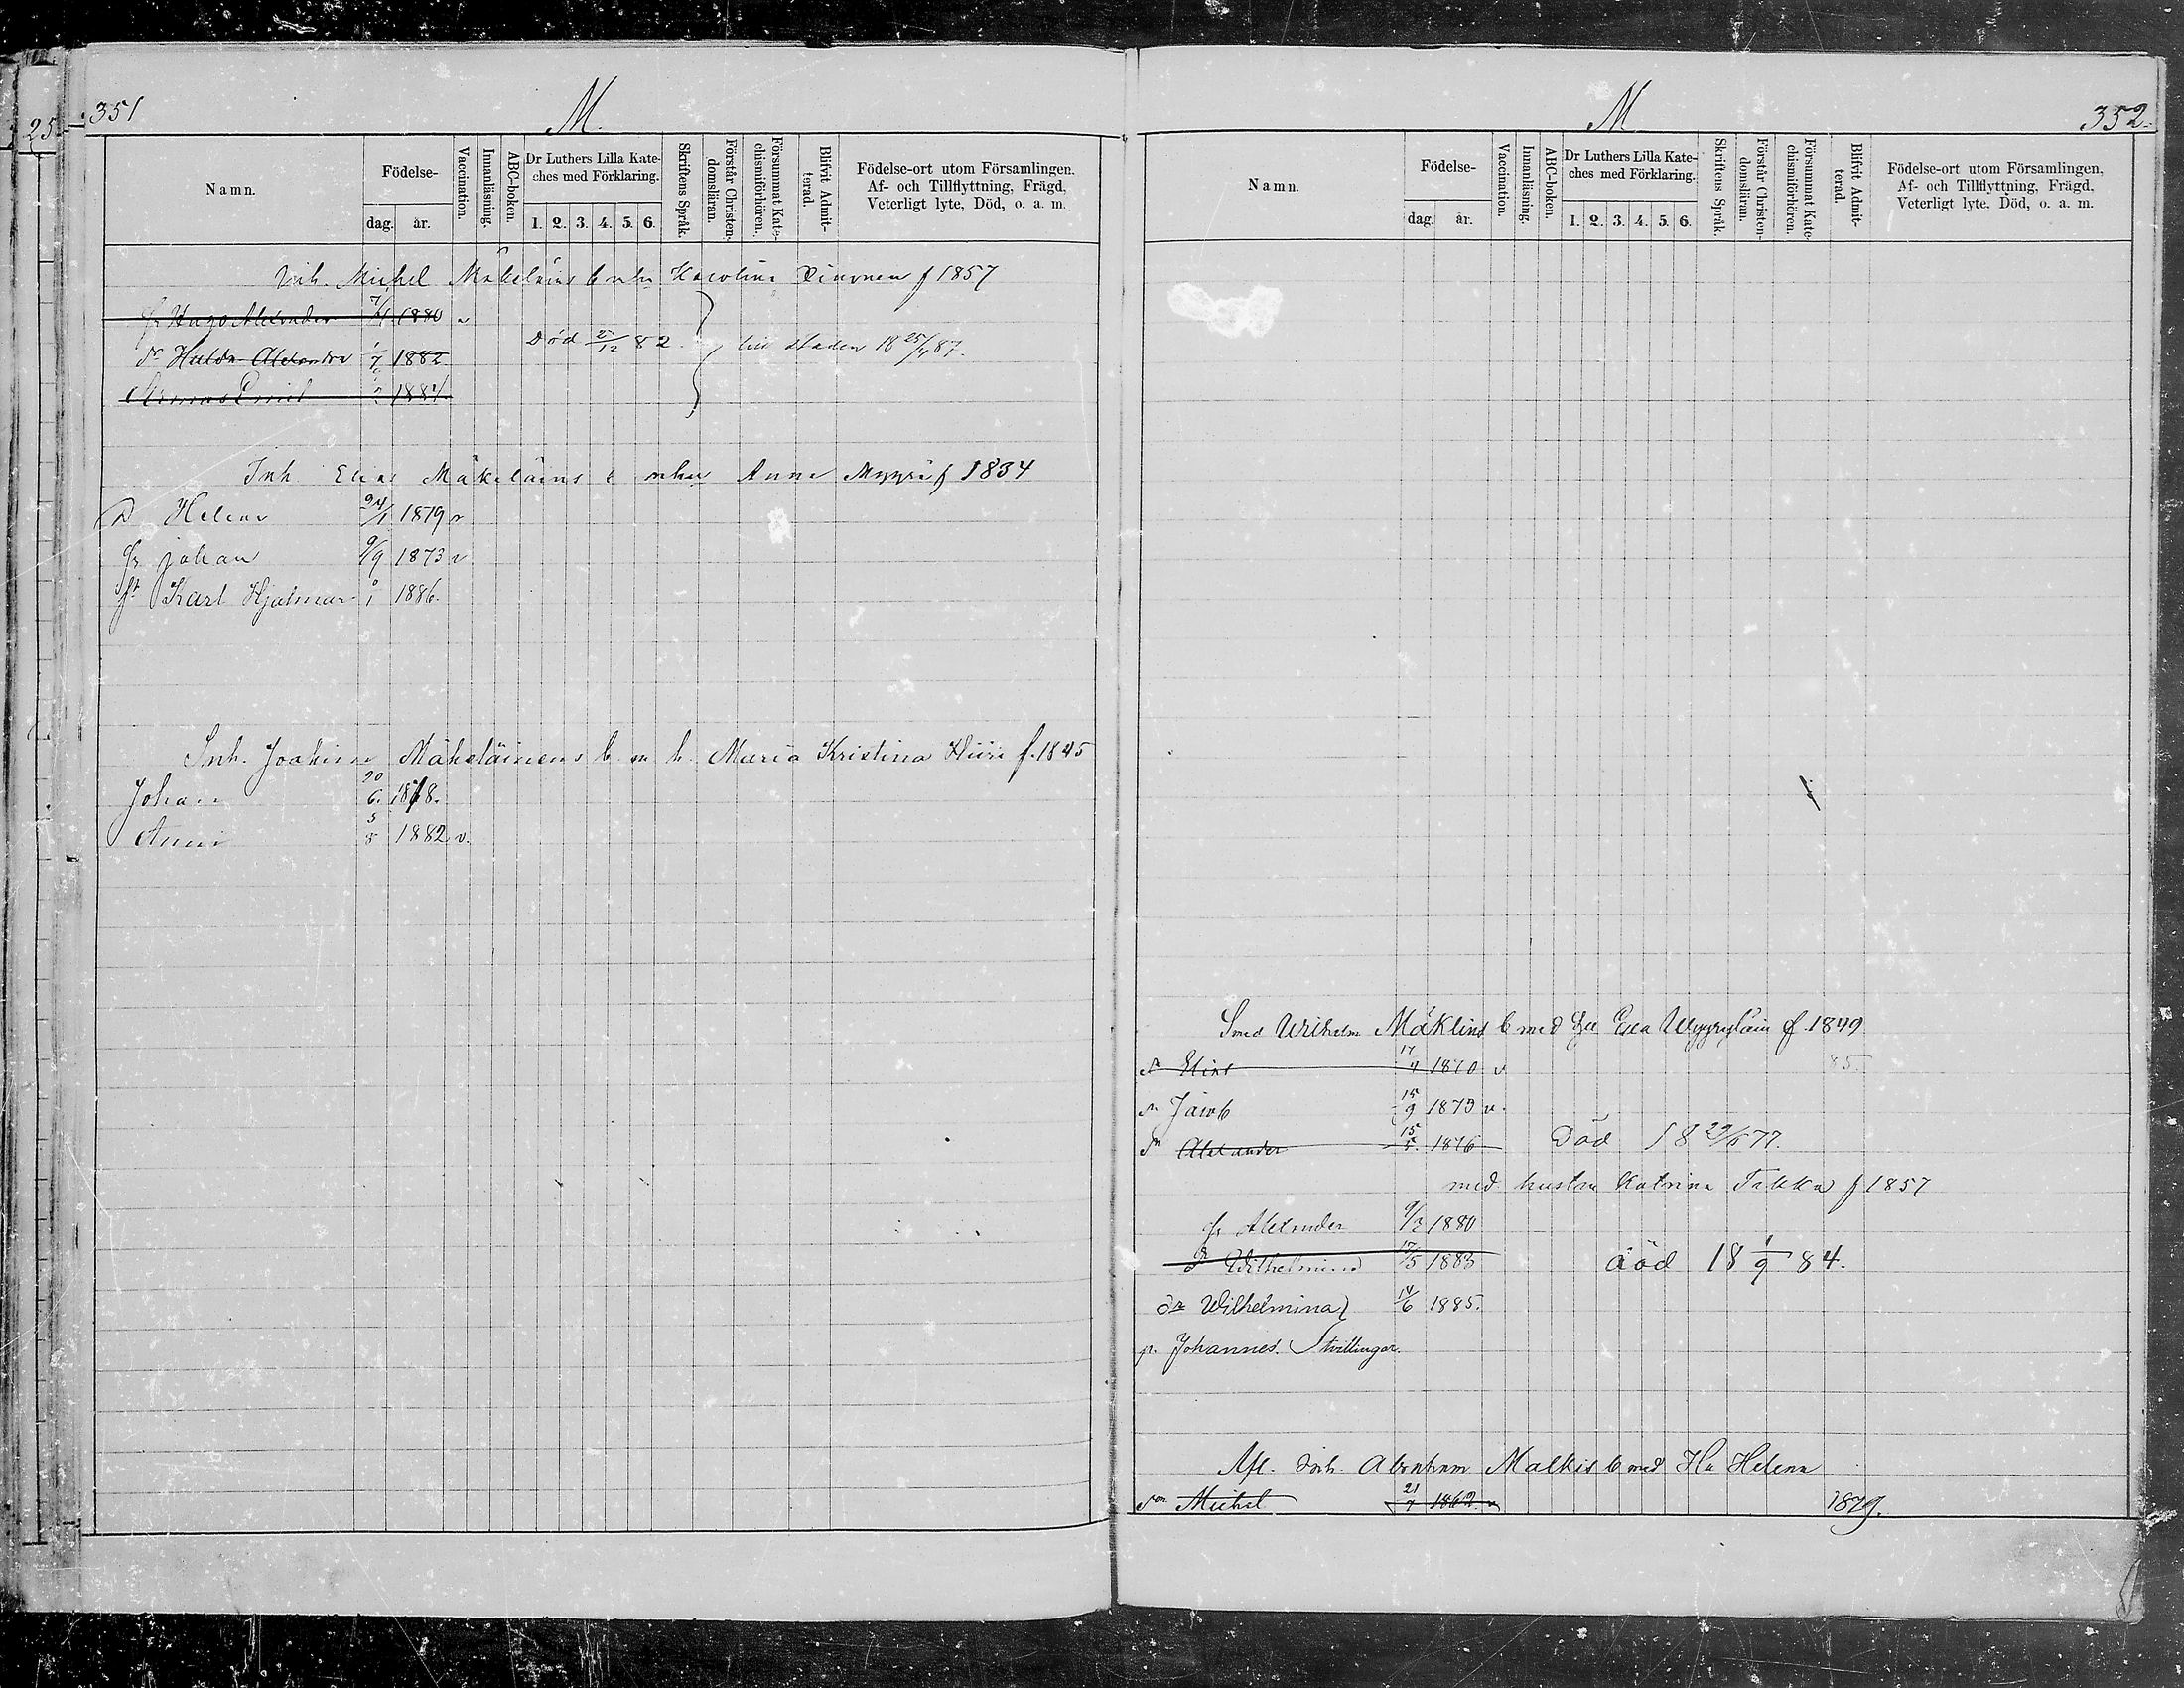 351
M.
Namn.
Födelse-
dag. år.
Vaccination.
Innanläsning.
ABC-boken.
Dr Luthers Lilla Kate-
ches med Förklaring.
1. 2. 3. 4. 5. 6.
Skriftens Språk.
Förstår Christen-
domsläran.
Försummat Kate-
chismiförhören.
Blifvit Admit-
terad.
Födelse-ort utom Församlingen.
Af- och Tillflyttning, Frägd,
Veterligt lyte, Död, o. a. m.
Inh. Michel Mäkeläins b Karolina f 1857
Hugo Alexander 7/1 1880 v
dr Hulda Alexandra 1/7 1882 Död 27/12 82. till Staden 18 25/4 87.
Armas Emil 1884.
Inh Elias Mäkeläins b Anna f 1834
D Helena 24/1 1879 v
Johan 9/9 1873 v
Karl Hjalmar 1886.
Inh. Joakim Mäkeläinens b. m h. Maria Kristina f. 1845
Johan 20 6. 1868.
Anni 5 8 1882 v.
25
M
352.
Namn.
Födelse-
dag. år.
Vaccination.
Innanläsning.
ABC-boken.
Dr Luthers Lilla Kate-
ches med Förklaring.
1. 2. 3. 4. 5. 6.
Skriftens Språk.
Förstår Christen-
domsläran.
Försummat Kate-
chismiförhören.
Blifvit Admit-
terad.
Födelse-ort utom Församlingen,
Af- och Tillflyttning, Frägd,
Veterligt lyte, Död, o. a. m.
Smed Wilhelm Mäklins b med Eva f. 1849
sn Elias 17 4 1870 v 85.
sn Jacob 15 9 1873 v.
sn Alexander 15 5. 1876 Död 18 29/5 77.
med hustru Katrina Takka f 1857
Alexander 9/3 1880
Wilhelmina 17/5 1883 död 18 1/9 84.
dr Wilhelmina 14/6 1885.
p. Johannes. Tvillingar.
Afl. Inh. Abraham Malkis b med Hu Helena
son Michel 21 7 1862. v 1879.